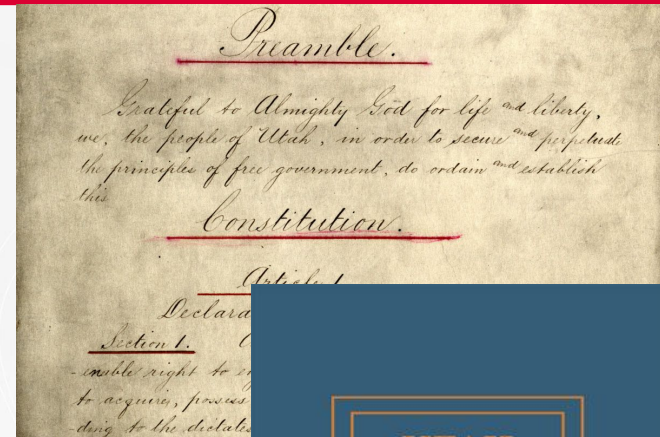 Preamble.
Grateful to Almighty God for life and liberty,
we, the people of Utah, in order to secure and perpetuate
the principles of free government, do ordain and establish
this
Constitution.
Article 1.
Declara
Section 1.
-enable right to en
to acquire, possess
-ding to the dictates